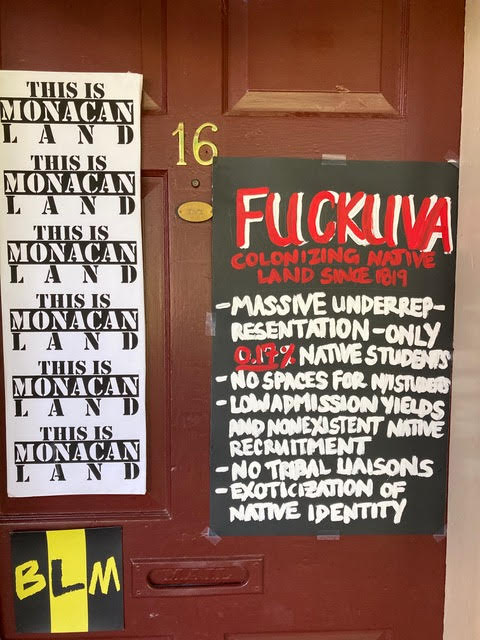 THIS IS
MONACAN
LAND
THIS IS
MONACAN
LAND
THIS IS
MONACAN
LAND
THIS IS
MONACAN
LAND
THIS IS
MONACAN
LAND
THIS IS
MONACAN
LAND
BLM
16
FUCKUVA
COLONIZING NATIVE
LAND SINCE 1819
-MASSIVE UNDERREP-
RESENTATION-ONLY
0.17% NATIVE STUDENTS
-NO SPACES FOR
-LOW ADMISSION YIELDS
AND NONEXISTENT NATIVE
RECRUITMENT
-NO TRIBAL LIAISONS
-EXOTICIZATION OF
NATIVE IDENTITY